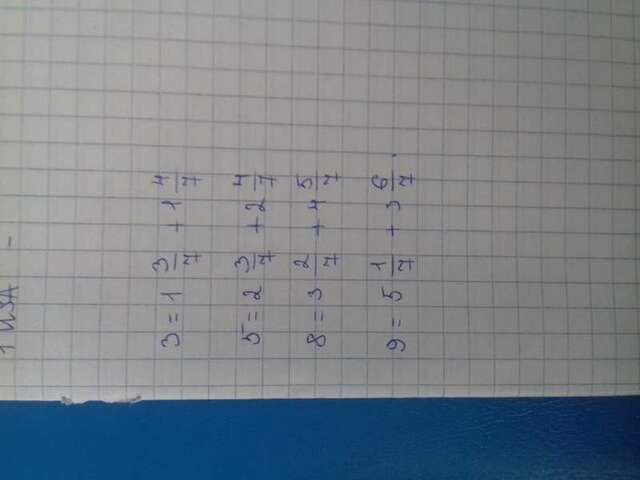 1 ИЗА -
3 = 1 3/7 + 1 4/7
5 = 2 3/7 + 2 4/7
8 = 3 2/7 + 4 5/7
9 = 5 1/7 + 3 6/7.